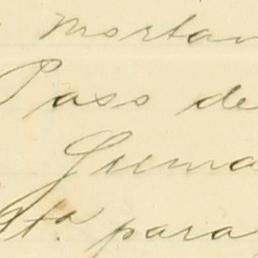 mortan
Paso de
Guma
Sta. para